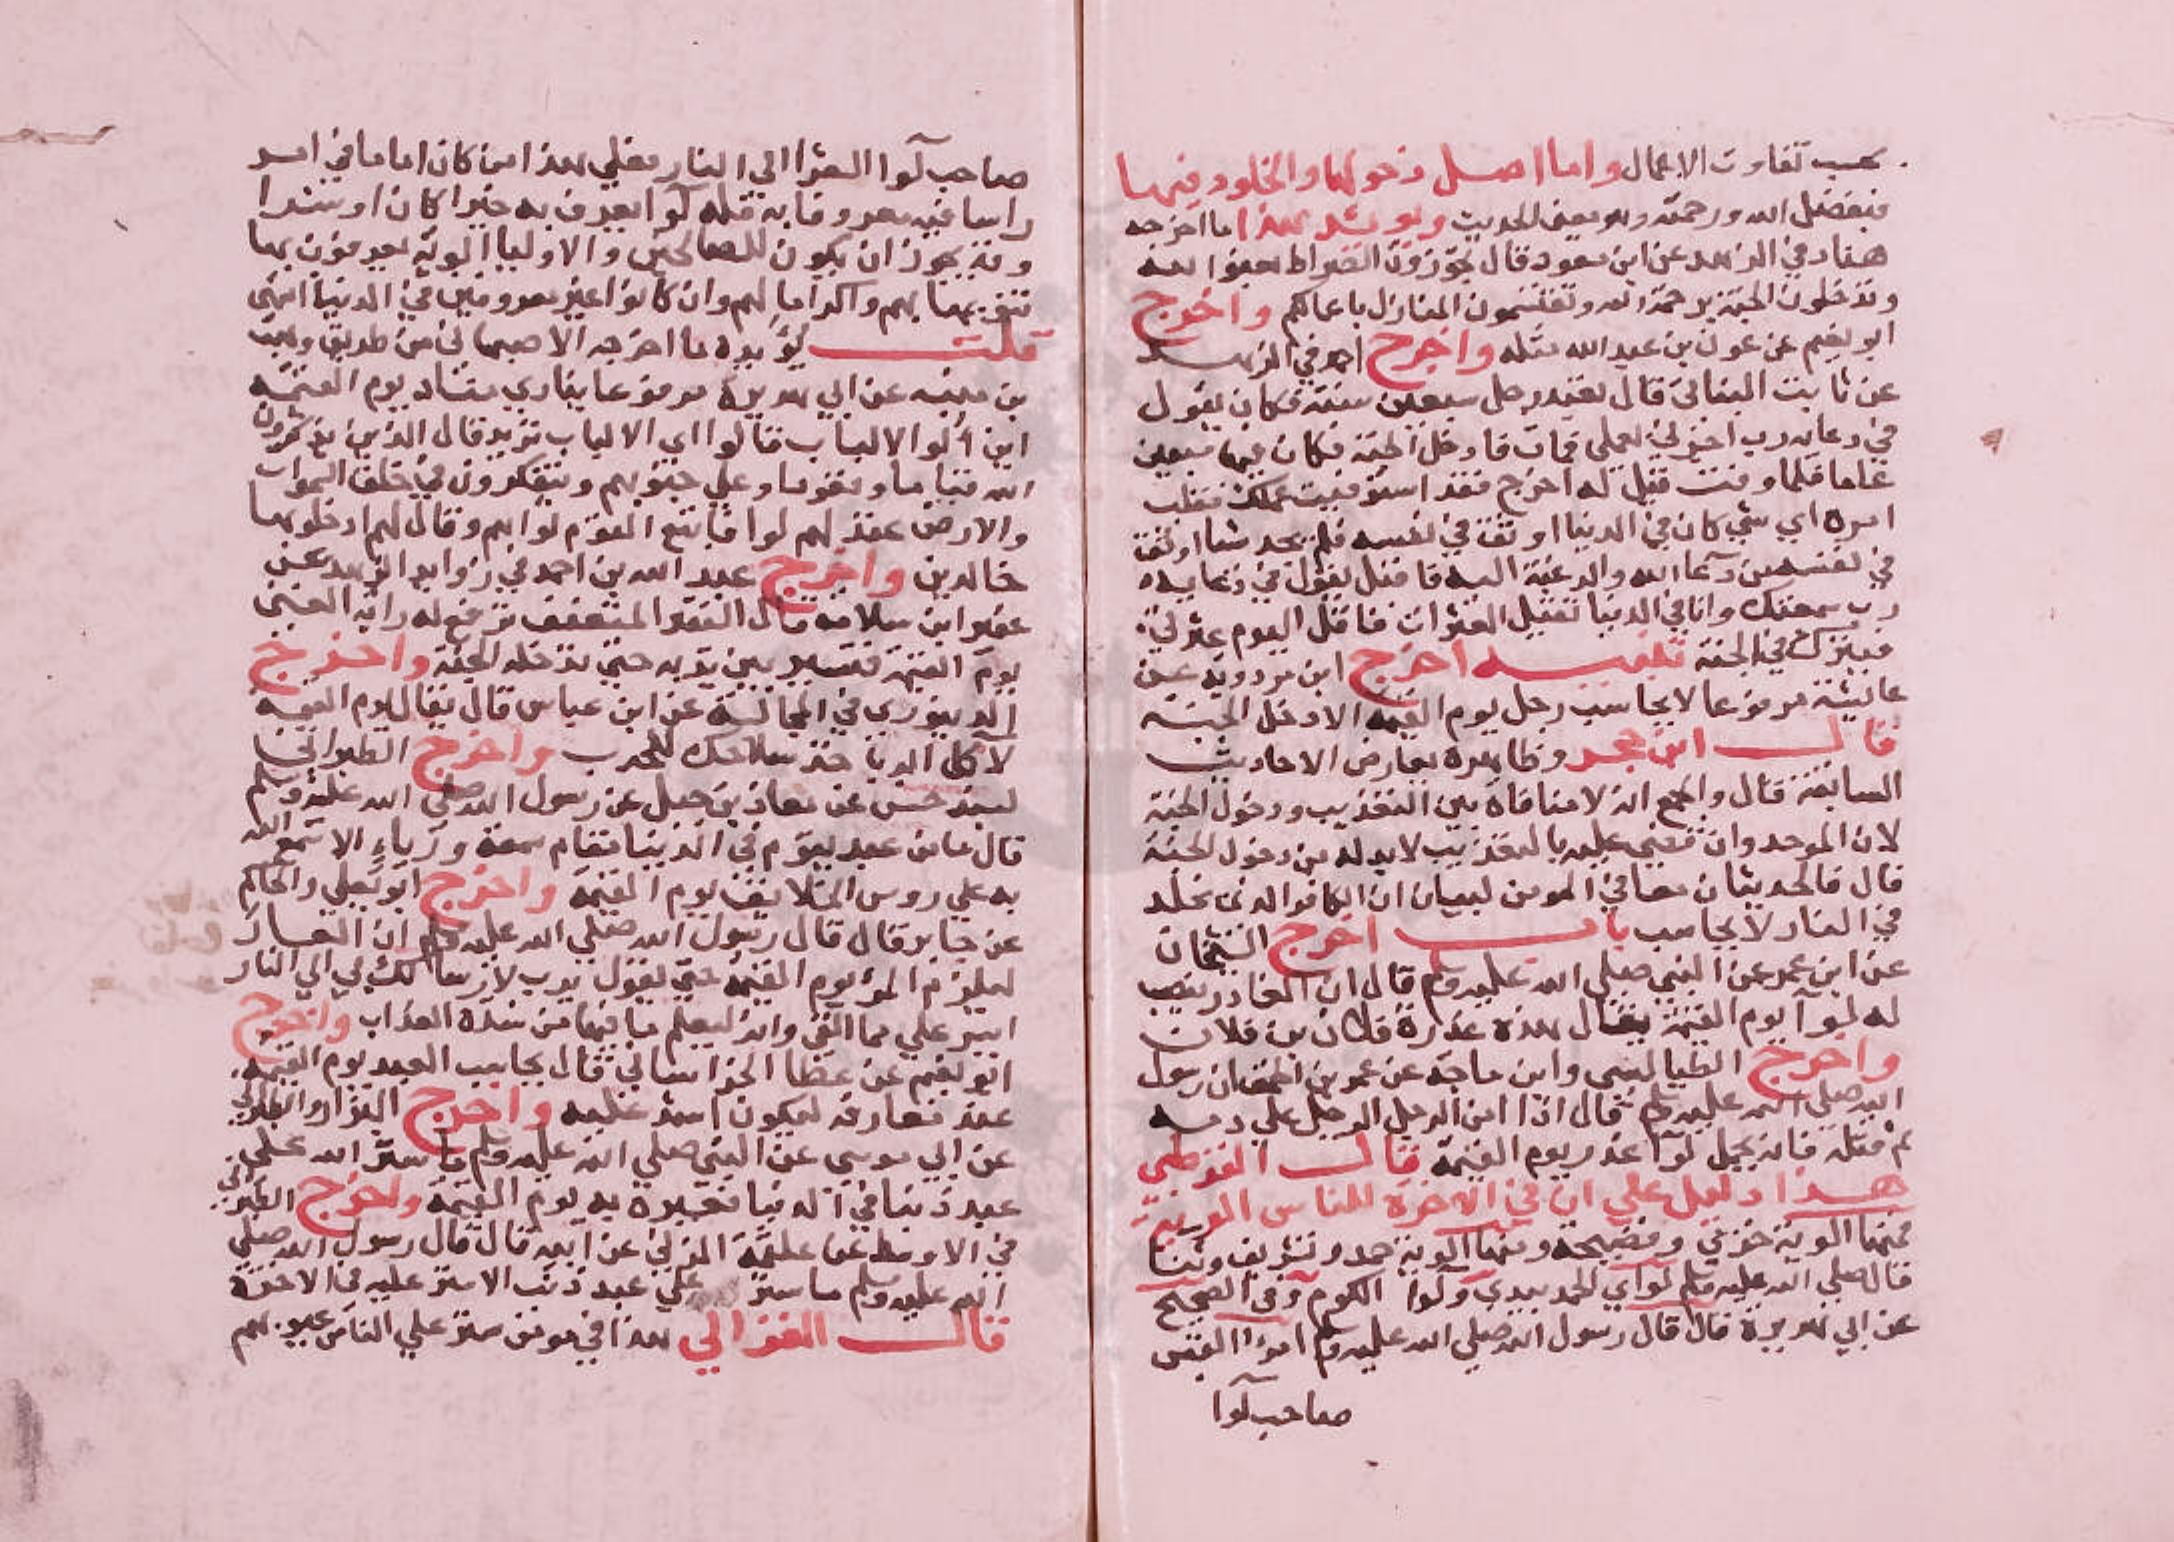 بحسب تفاوت الاعمال واما اصل دخولها والخلود فيها
فبفضل الله ورحمته وهو معنى الحديث ويويد هذا ما اخرجه
هناد في الزهد عن ابن مسعود قال تجوزون الصراط بعفو الله
وتدخلون الجنة برحمة الله وتقتسمون المنازل باعمالكم واخرج
ابو نعيم عن عون بن عبد الله مثله واخرج احمد في الزهد
عن ثابت البناني قال تعبد رجل سبعين سنة فكان يقول
في دعايه رب اجزني بعملي فمات فادخل الجنة فكان فيها سبعين
عاما فلما وفت قيل له اخرج فقد استوفيت عملك فقلب
امره اي شي كان في الدنيا اوثق في نفسه فلم يجد شيا اوثق
في نفسه من دعا الله والرغبة اليه فاقبل يقول في دعايه
رب سمعتك وانا في الدنيا تقيل العثرات فاقل اليوم عثرتي
فيترك في الجنة تنبيه اخرج ابن مردويه عن
عايشة مرفوعا لا يحاسب رجل يوم القيمة الا دخل الجنة
قال ابن حجر وظاهره يعارض الاحاديث
السابقة قال والجمع انه لا منافاة بين التعذيب ودخول الجنة
لان الموحد وان قضى عليه بالتعذيب لابد له من دخول الجنة
قال فالحديثان معا في المومن لبيان ان الكافر الذي يخلد
في النار لا يحاسب باب اخرج الشيخان
عن ابن عمر عن النبي صلى الله عليه وسلم قال ان الغادر ينصب
له لوآ يوم القيمة يقال هذه غدرة فلان بن فلان
واخرج الطيالسي وابن ماجه عن عمرو بن الحمق ان رسول
الله صلى الله عليه وسلم قال اذا امن الرجل الرجل على دمه
ثم قتله فانه يحمل لوآ غدر يوم القيمة قال القرطبي
هذا دليل على ان في الاخرة للناس الوية
فمنها الوية خزي وفضيحة ومنها الوية حمد وتشريف وثنا
قال صلى الله عليه وسلم لواي الحمد بيدي ولوا الكرم وفي الصحيح
عن ابي هريرة قال قال رسول الله صلى الله عليه وسلم امرؤ القيس
صاحب لوآ
صاحب لوآ الشعرا الى النار فعلى هذا من كان اماما في امر
راسا فيه معروفا به فله لوآ يعرف به خيرا كان او شرا
وقد يجوز ان يكون للصالحين والاوليا الوية يعرفون بها
تنويها بهم واكراما لهم وان كانوا غير معروفين في الدنيا انتهى
قلت يؤيده ما اخرجه الاصبهاني من طريق وهب
بن منبه عن ابي هريرة مرفوعا ينادي مناد يوم القيمة
اين اولوا الالباب قالوا اي الالباب تريد قال الذين يذكرون
الله قياما وقعودا وعلى جنوبهم ويتفكرون في خلق السموات
والارض عقد لهم لوا فاتبع القوم لواهم وقال لهم ادخلوها
خالدين واخرج عبد الله بن احمد في زوايد الزهد عن
قال الفقير المتعفف ترفع له راية الغنى
يوم القيمة فتسير بين يديه حتى تدخله الجنة واخرج
الدينوري في المجالسة عن ابن عباس قال يقال يوم القيمة
لآكل الربا خذ سلاحك للحرب واخرج الطبراني
بسند حسن عن معاذ بن جبل عن رسول الله صلى الله عليه وسلم
قال ما من عبد يقوم في الدنيا مقام سمعة ورياء الا سمع الله
به على روس الخلايق يوم القيمة واخرج ابو يعلى والحاكم
عن جابر قال قال رسول الله صلى الله عليه وسلم ان العار
ليلزم المرؤ يوم القيمة حتى يقول يرب لارسالك بي الى النار
ايسر علي مما القى وانه ليعلم ما فيها من شدة العذاب واخرج
ابو نعيم عن عطا الخراساني قال يحاسب العبد يوم القيمة
عند معارفه ليكون اشد عليه واخرج البزار والطبراني
عن ابي موسى عن النبي صلى الله عليه وسلم ما ستر الله على
عبد ذنبا في الدنيا فعيره به يوم القيمة واخرج الطبراني
في الاوسط عن علقمة المزني عن ابيه قال قال رسول الله صلى
الله عليه وسلم ما ستر على عبد ذنب الا ستر عليه في الاخرة
قال الغزالي هذا في مومن ستر على الناس عيوبهم